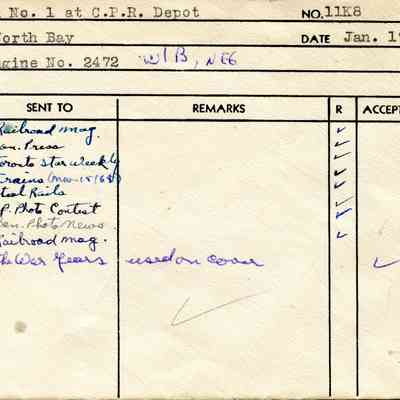 No. 1 at C.P.R. Depot NO. 11K8
North Bay DATE Jan. 1
ngine No. 2472 W/B, NEG
SENT TO REMARKS R ACCEPT
Railroad mag. ✓
an. Press ✓
oronto Star Weekly ✓
Trains (Nov-15/68) ✓
teel Rails ✓
P. Photo Contest ✓
an. Photo News ✓
Railroad mag. ✓
the War Years used on cover ✓
✓